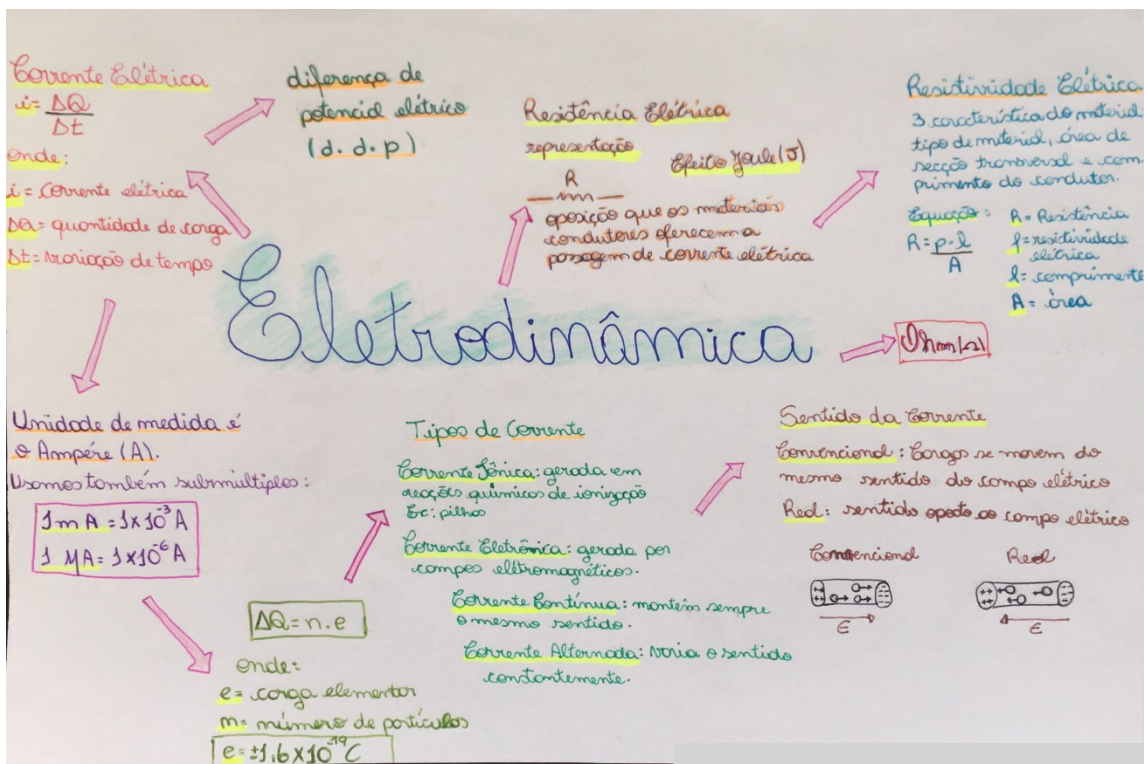 Corrente Elétrica
i= ΔQ
Δt
onde:
i= corrente elétrica
ΔQ= quantidade de carga
Δt= variação de tempo
diferença de
potencial elétrico
(d.d.p)
Resistência Elétrica
representação
Efeito Joule (J)
R
oposição que os materiais
condutores oferecem a
passagem de corrente elétrica
Resistividade Elétrica
3 característica do material
tipo de material, área de
secção transversal e com
primento do condutor.
Equação:
R= ρ.l
A
R= Resistência
ρ= resistividade
elétrica
l= comprimento
A= área
Eletrodinâmica
Ohm (Ω)
Unidade de medida é
o Ampére (A).
Usamos também submultiplos:
1 m A = 1x10⁻³ A
1 μA = 1x10⁻⁶ A
ΔQ= n.e
onde:
e= carga elementar
n= número de partículas
e= ±1,6 x 10⁻¹⁹ C
Tipos de Corrente
Corrente Iônica: gerada em
reações químicas de ionização
Ex: pilhas
Corrente Eletrônica: gerada por
campos elétromagnéticos.
Corrente Contínua: mantém sempre
o mesmo sentido.
Corrente Alternada: varia o sentido
constantemente.
Sentido da Corrente
Convencional: Cargas se movem do
mesmo sentido do campo elétrico
Real: sentido oposto ao campo elétrico
Convencional Real
++ --
++ --
E E